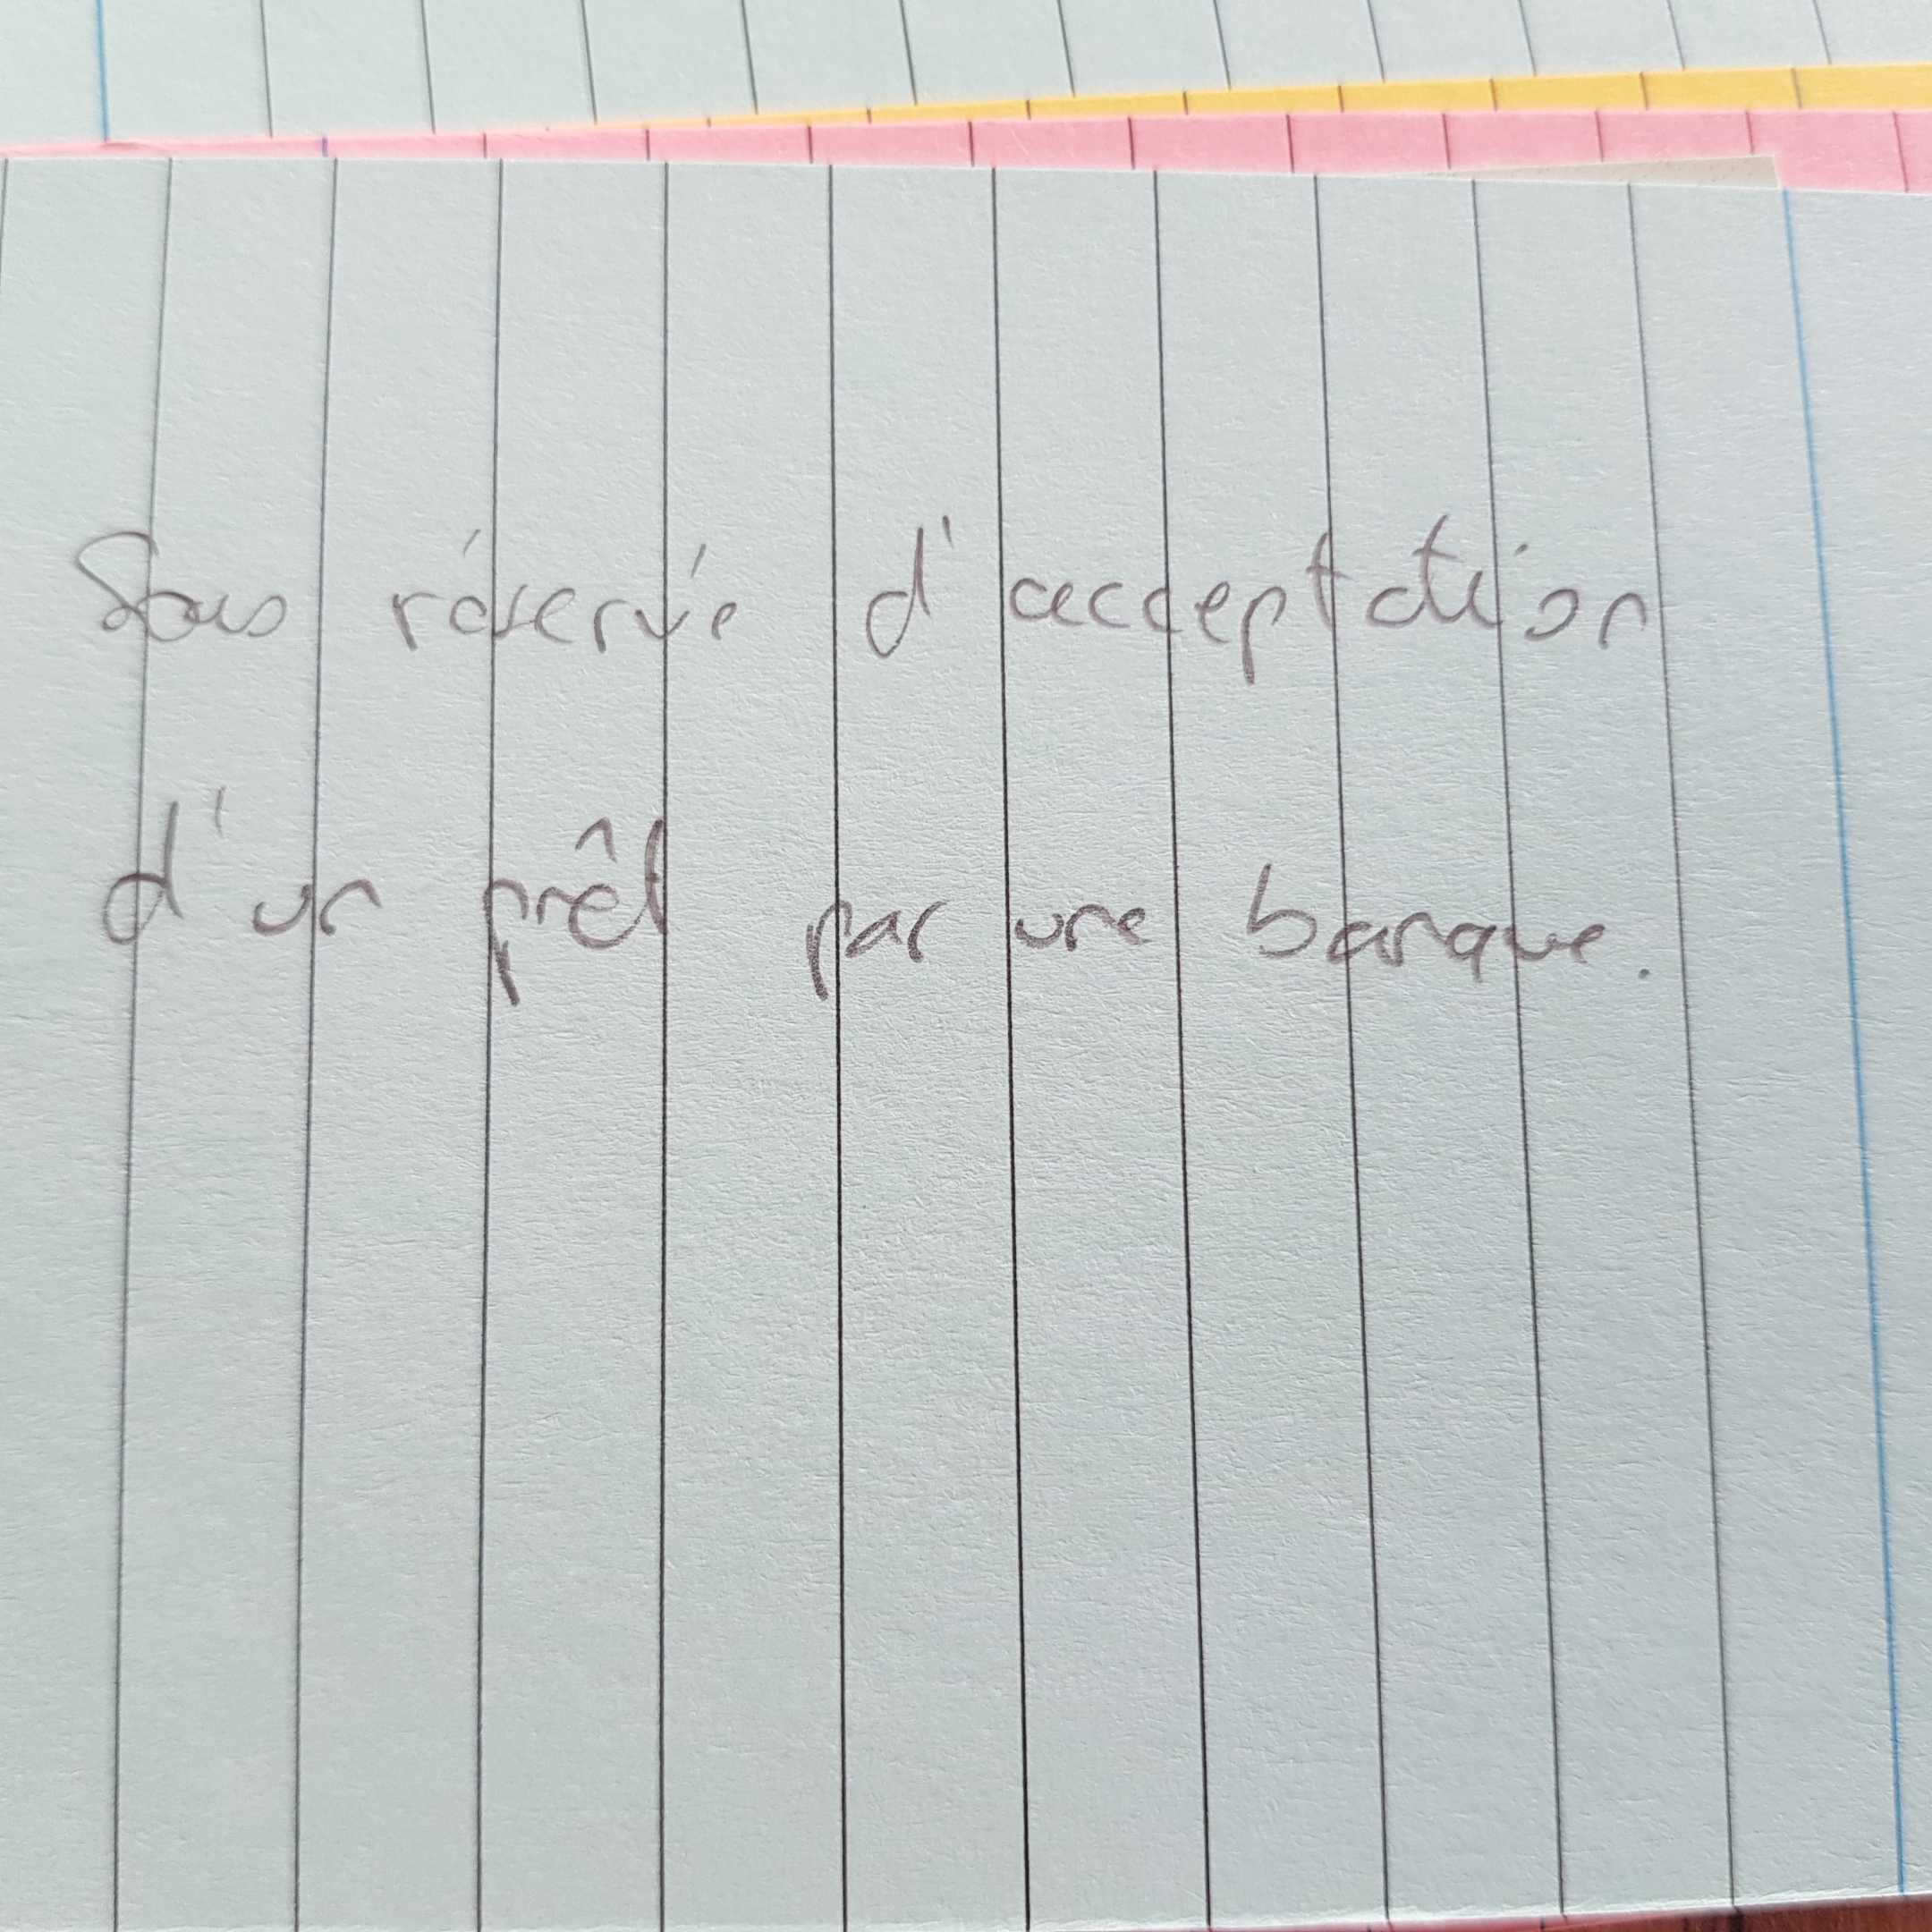 Sous réservé d'acceptation
d'un prêt par une banque.